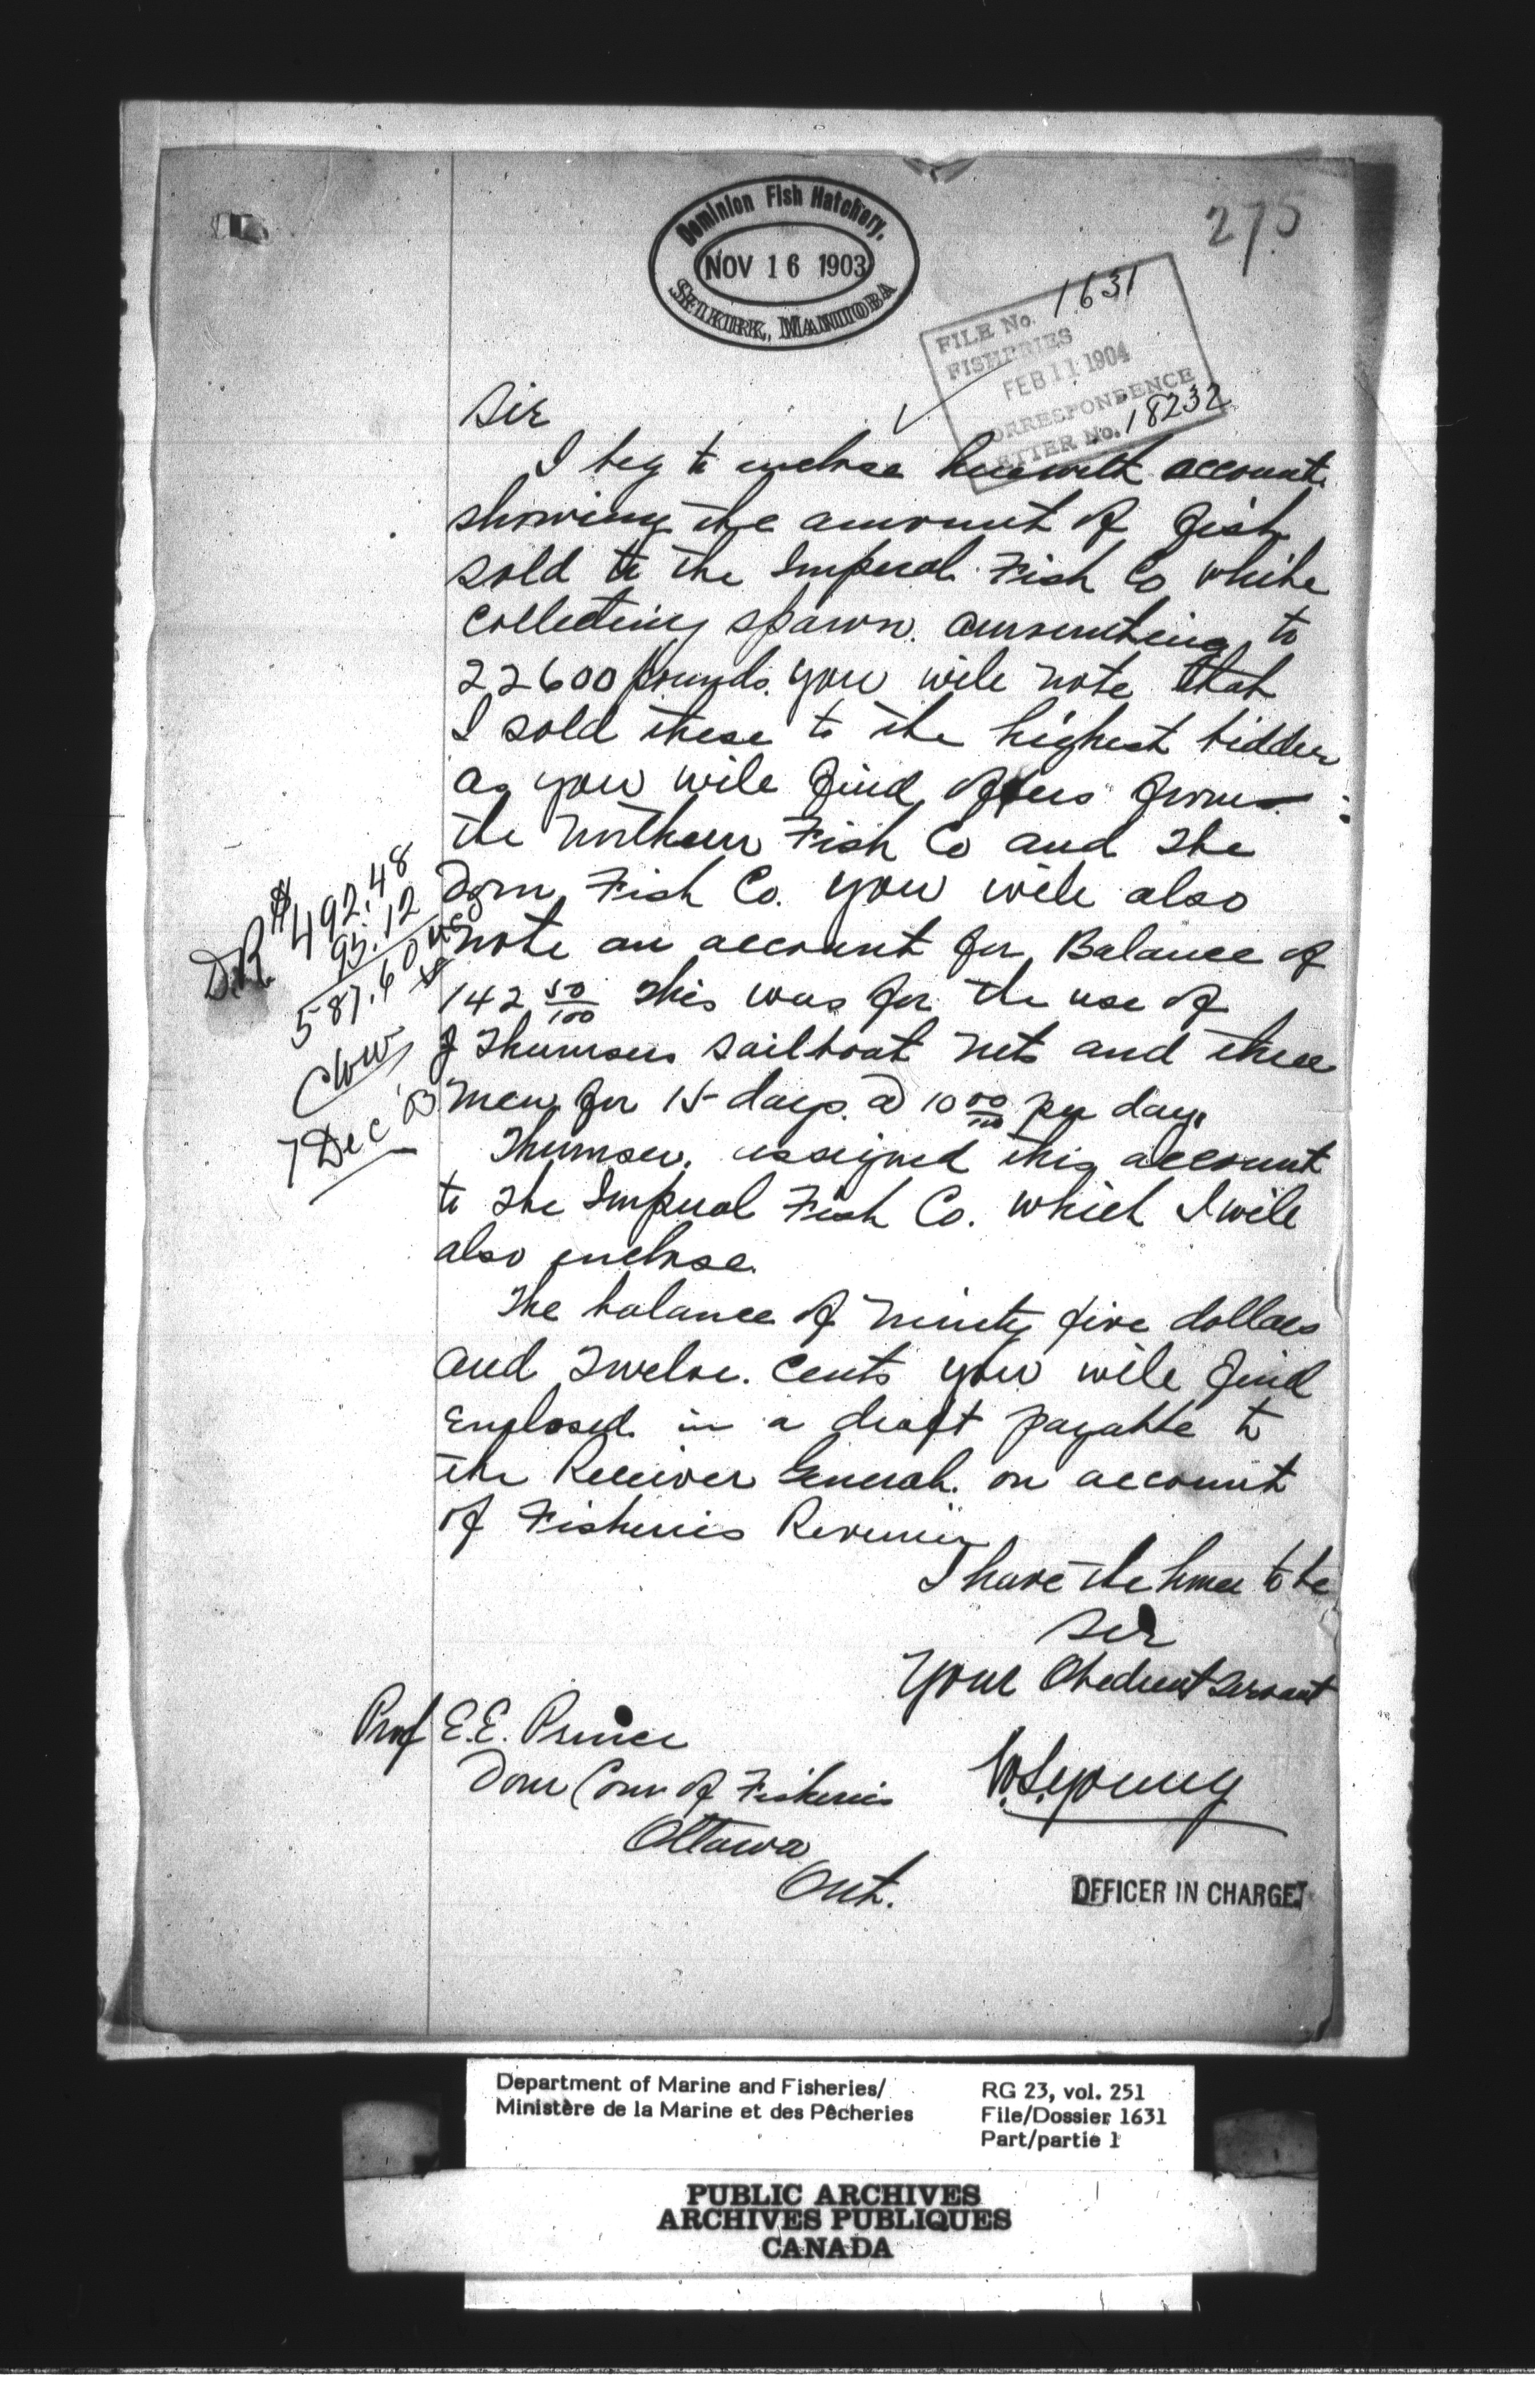 275
Dominion Fish Hatchery,
NOV 16 1903
SELKIRK, MANITOBA
FILE No. 1631
FISHERIES
FEB 11 1904
CORRESPONDENCE
LETTER No. 18232
Sir
I beg to enclose herewith account
showing the amount of fish
sold to the Imperial Fish Co while
collecting spawn. amounting to
22600 pounds. you will note that
I sold these to the highest bidder
as you will find offers from
the Northern Fish Co and The
Dom Fish Co. you will also
note an account for Balance of
142 50/100 This was for the use of
J Thumsen sailboat nets and three
men for 15 days. @ 10 00/100 per day.
Thumsen. assigned this account
to The Imperial Fish Co. which I will
also enclose.
The balance of Ninety five dollars
and Twelve. Cents you will find
Enclosed in a draft payable to
the Receiver General. on account
of Fisheries Revenue
I have the honor to be
Sir
Your Obedient Servant
W.S. Young
OFFICER IN CHARGE
Prof E.E. Prince
Dom Com of Fisheries
Ottawa
Ont.
D.R. $492.48
95.12
587.60
7 Dec '03
Department of Marine and Fisheries/
Ministère de la Marine et des Pêcheries
RG 23, vol. 251
File/Dossier 1631
Part/partie 1
PUBLIC ARCHIVES
ARCHIVES PUBLIQUES
CANADA